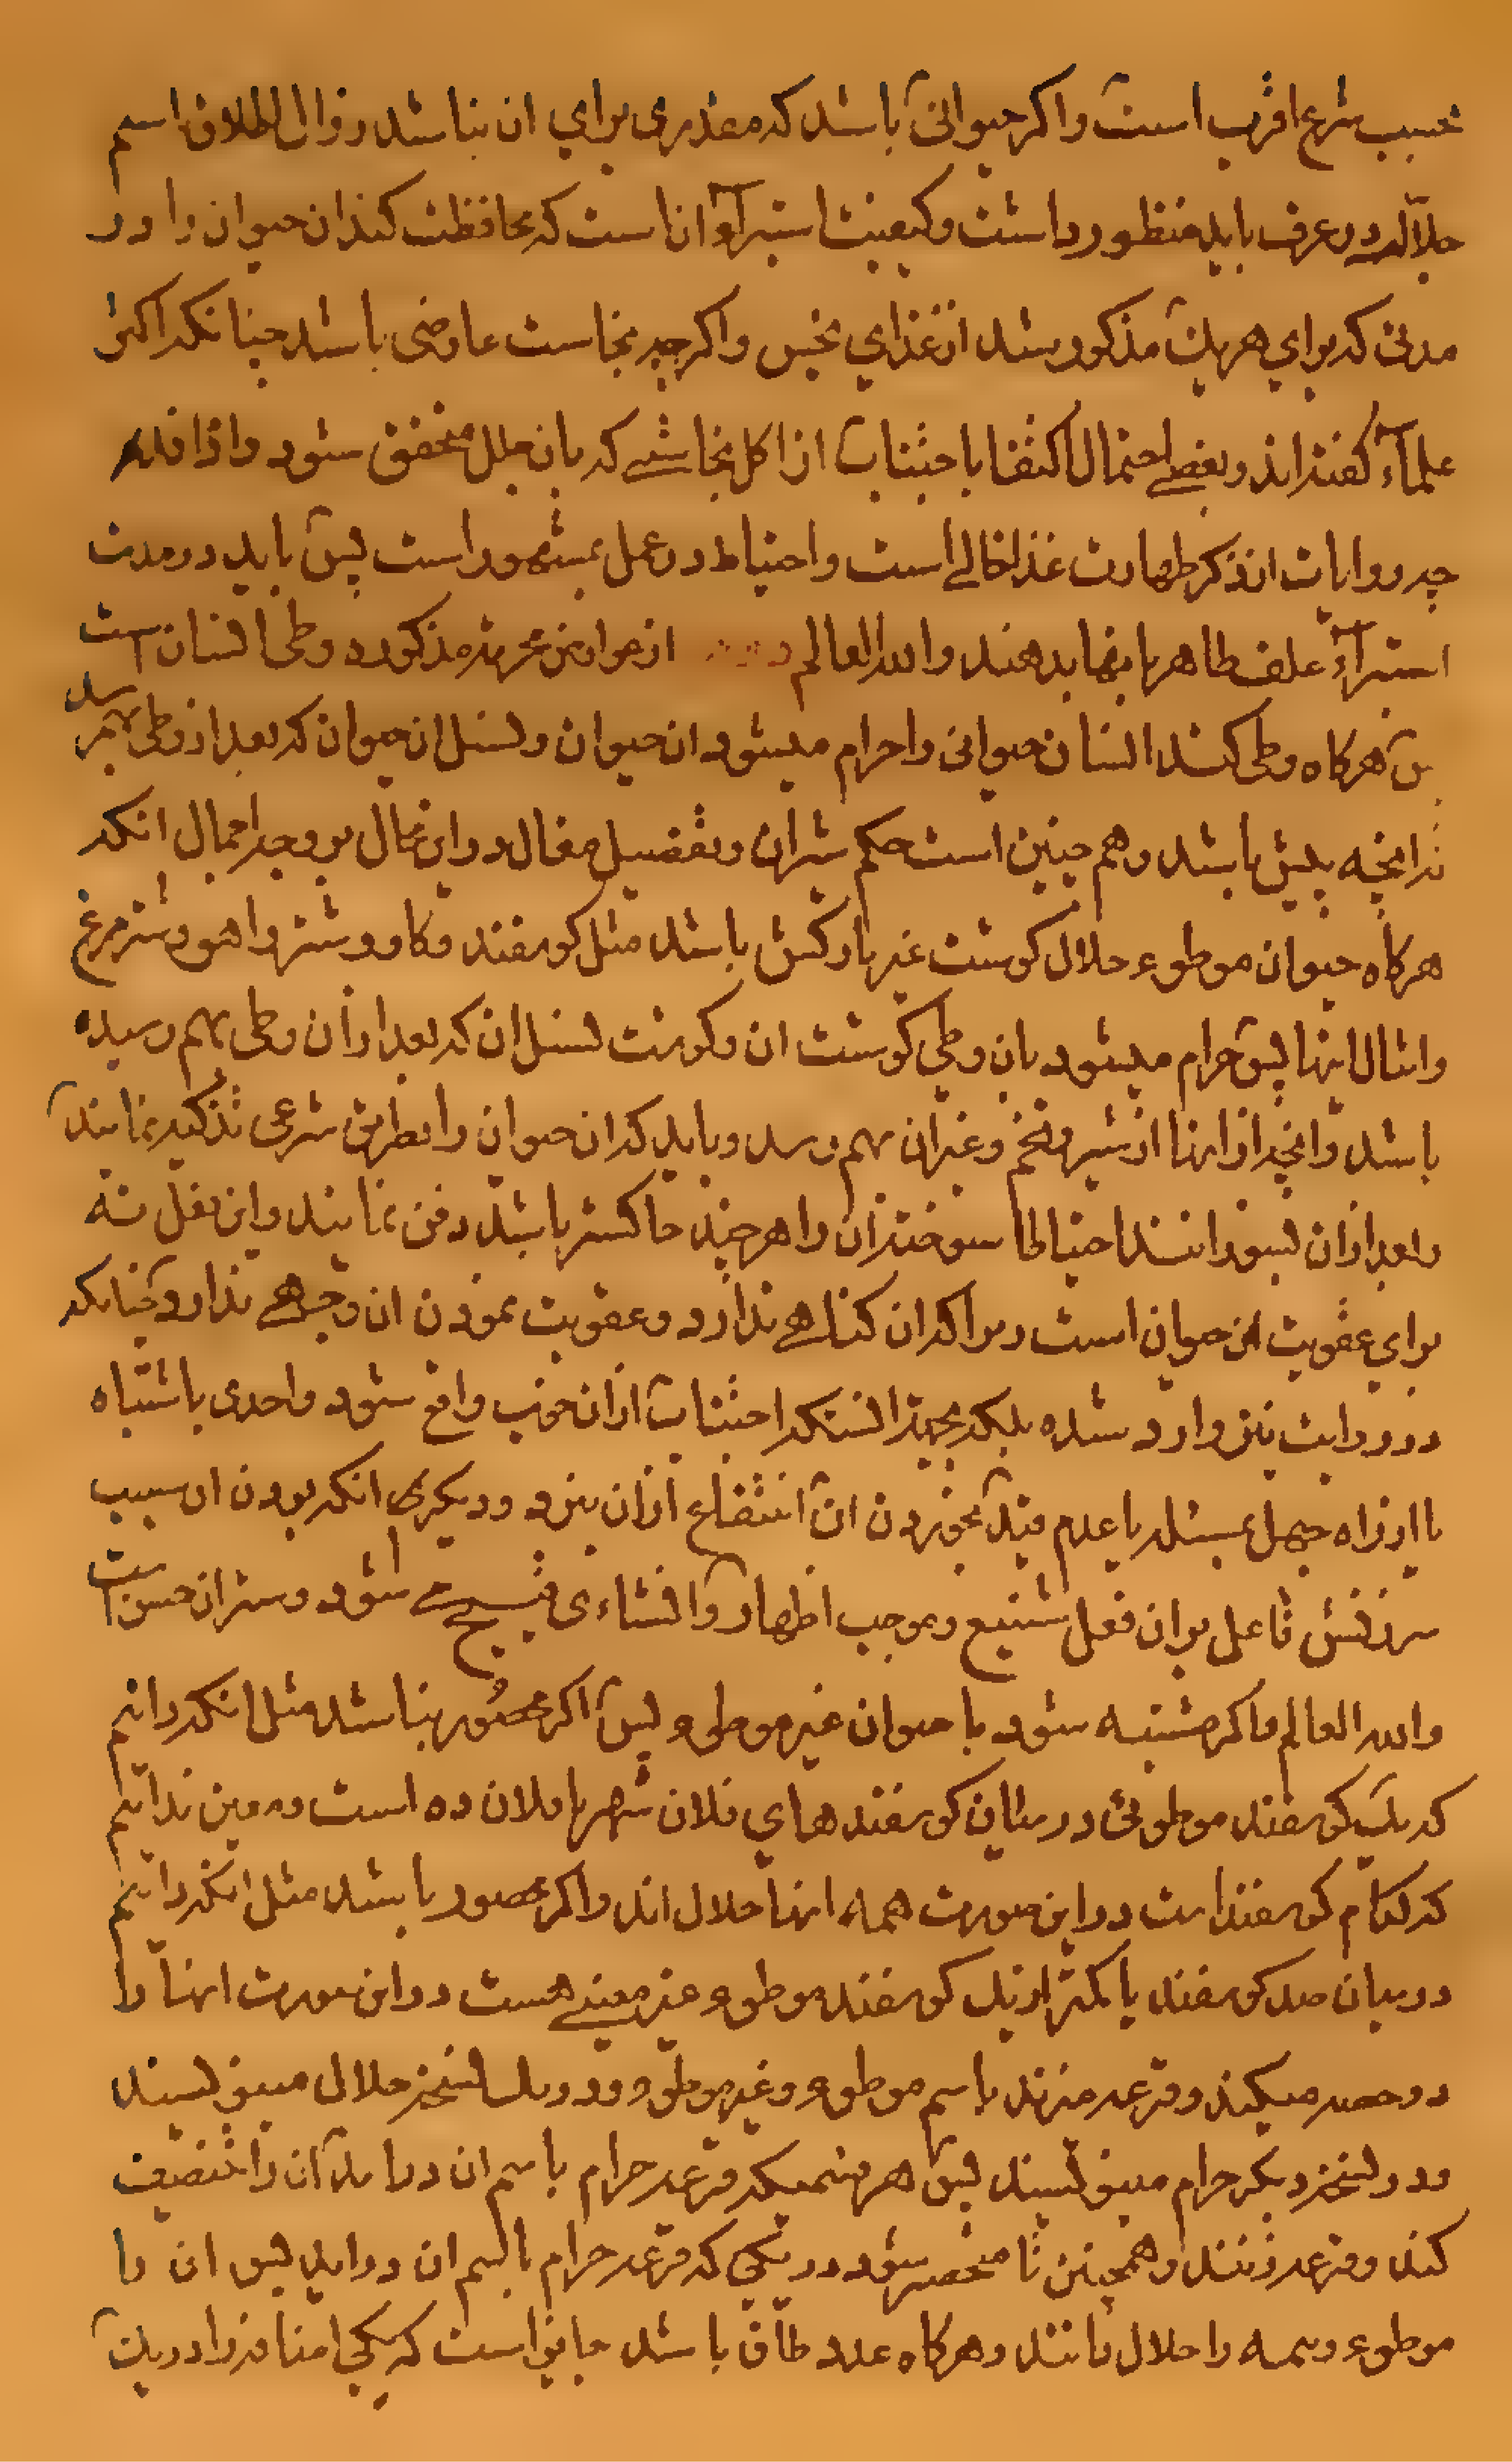 بحسب شرع اقرب است و اکر حیوانی باشد که مقدری برای ان نباشد زوال اطلاق اسم
جلاله در عرف باید منظور داشت و کیفیت استبرآء ان است که محافظت کنند ان حیوان را در
مدتی که برای هر یک مذکور شد از غذای نجس و اکر چه نجاست عارضی باشد چنانکه اکثر
علمآء کفته اند و بعضی احتمال اکتفا باجتناب از اکل نجاستی که بان جلل متحقق شود داده اند
چه روایات از ذکر طهارت غذا خالی است و احتیاط در عمل بمشهور است پس باید در مدت
استبرآء علف طاهر بانها بدهند و الله العالم از عوارض محرمه مذکوره وطی انسان است
پس هرکاه وطی کند انسان حیوانی را حرام میشود ان حیوان و نسل ان حیوان که بعد از وطی بهم رسد
نه انچه پیش باشد و هم چنین است حکم شیر ان و تفصیل مقال در این حال بر وجه اجمال انکه
هرکاه حیوان موطوء حلال کوشت غیر بارکش باشد مثل کوسفند و کاو و شتر و اهو و شترمرغ
و امثال اینها پس حرام میشود بان وطی کوشت ان و کوشت نسل ان که بعد از ان وطی بهم رسیده
باشد و انچه از اینها از شیر و تخم و غیر ان بهم رسد و باید که ان حیوان را بطریق شرعی تذکیه نمایند
و بعد از ان بسوزانند احتیاطا سوخته ان را هر چند خاکستر باشد دفن نمایند و این نقل نه
برای عقوبت این حیوان است زیرا که ان کناهی ندارد و عقوبت نمودن ان وجهی ندارد چنانکه
در روایت نیز وارد شده بلکه بجهة انستکه اجتناب از ان خوب واقع شود و احدی باشتباه
یا از راه جهل بمسئله یا عدم قید بخوردن ان انتفاع از ان نبرد و دیکری انکه بودن ان سبب
سرزنش فاعل بر ان فعل شنیع و موجب اظهار و افشاءی قبیح می شود و ستر ان حسن است
و الله العالم و اکر مشتبه شود با حیوان غیر موطوء پس اکر محصور نباشد مثل انکه دانیم
که یک کوسفند موطوئی در میان کوسفندهای فلان شهر یا فلان ده است و معین ندانیم
که کدام کوسفند است در این صورت همه اینها حلال اند و اکر محصور باشد مثل انکه دانیم
در میان صد کوسفند یا کمتر از یک کوسفند موطوء غیر معینی هست در این صورت اینها را
دو حصه میکنند و قرعه میزنند باسم موطوء و غیر موطوء و در یک نسخه حلال مینویسند
و در نسخه دیکر حرام مینویسند پس هر قسمیکه قرعه حرام باسم ان درآید ان را تنصیف
کنند و قرعه زنند و همچنین تا منحصر شود در یکی که قرعه حرام باسم ان درآید پس ان را
موطوء و بیمه را حلال دانند و هرکاه عدد طاق باشد جایز است که یکی اضافه را در یک